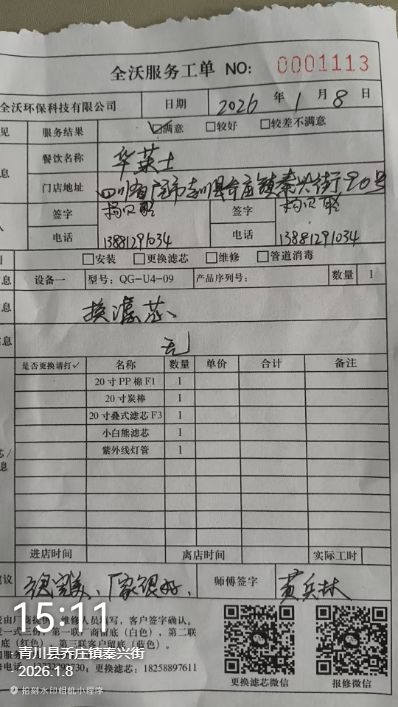 全沃服务工单 NO: 0001113
全沃环保科技有限公司 日期 2026年1月8日
见 服务结果 ☑满意 □较好 □较差不满意
餐饮名称 华莱士
息 门店地址 四川省广元市青川县乔庄镇秦兴街90号
签字 签字
人 电话 13881291034 电话 13881291034
□安装 □更换滤芯 □维修 □管道消毒
息 设备一 型号: QG-U4-09 产品序列号: 数量 1
息 换滤芯
信息 无
是否更换请打✓ 名称 数量 单价 合计 备注
20寸PP棉F1 1
20寸炭棒 1
20寸叠式滤芯F3 1
小白熊滤芯 1
紫外线灯管 1
芯/
息
进店时间 离店时间 实际工时
建议 很完美、厂家很好 师傅签字 黄兵林
维修人员填写,客户签字确认。
一式三份,第一联厂商留底(白色),第二联
底(红色),第三联客户留底(蓝色)。
更换滤芯: 18258897611
更换滤芯微信 报修微信
15:11
青川县乔庄镇秦兴街
2026.1.8
拍刻水印相机小程序